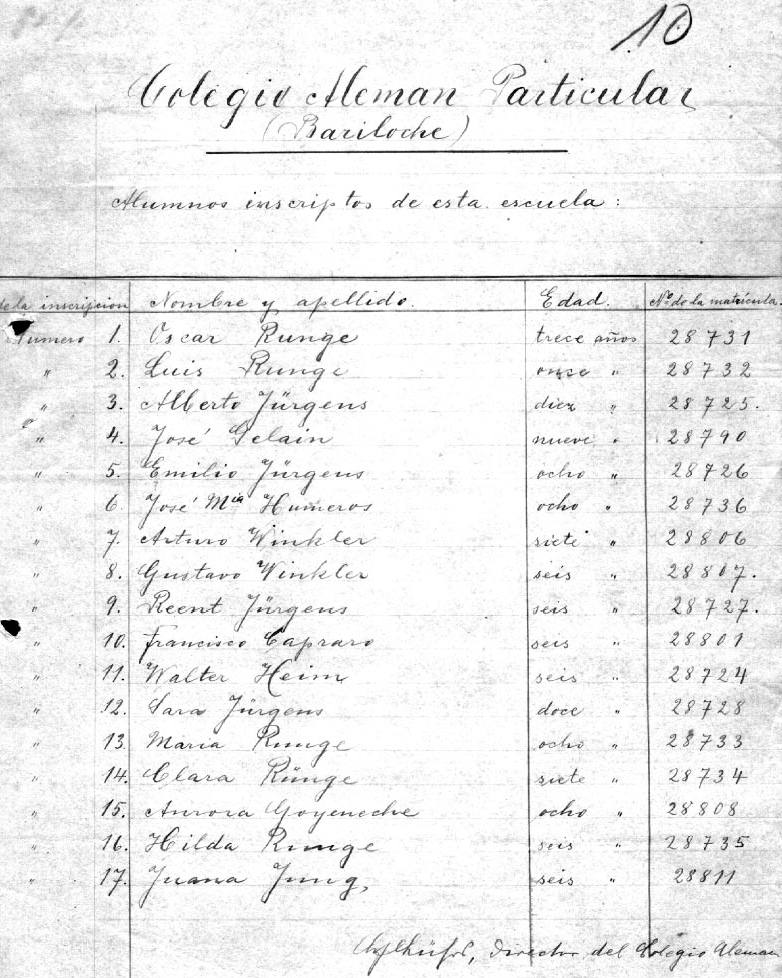 10
Colegio Aleman Particular
(Bariloche)
Alumnos inscriptos de esta escuela :
de la inscripcion Nombre y apellido. Edad. Nº de la matrícula.
Numero 1. Oscar Runge trece años 28731
" 2. Luis Runge onze " 28732
" 3. Alberto Jürgens diez " 28725.
" 4. José Gelain nueve " 28790
" 5. Emilio Jürgens ocho " 28726
" 6. José Mia Humeros ocho " 28736
" 7. Arturo Winkler siete " 28806
" 8. Gustavo Winkler seis " 28807.
" 9. Reent Jürgens seis " 28727.
" 10. Francisco Capraro seis " 28801
" 11. Walter Heim seis " 28724
" 12. Sara Jürgens doce " 28728
" 13. Maria Runge ocho " 28733
" 14. Clara Runge siete " 28734
" 15. Aurora Goyeneche ocho " 28808
" 16. Hilda Runge seis " 28735
" 17. Juana Jung, seis " 28811
Director del Colegio Aleman